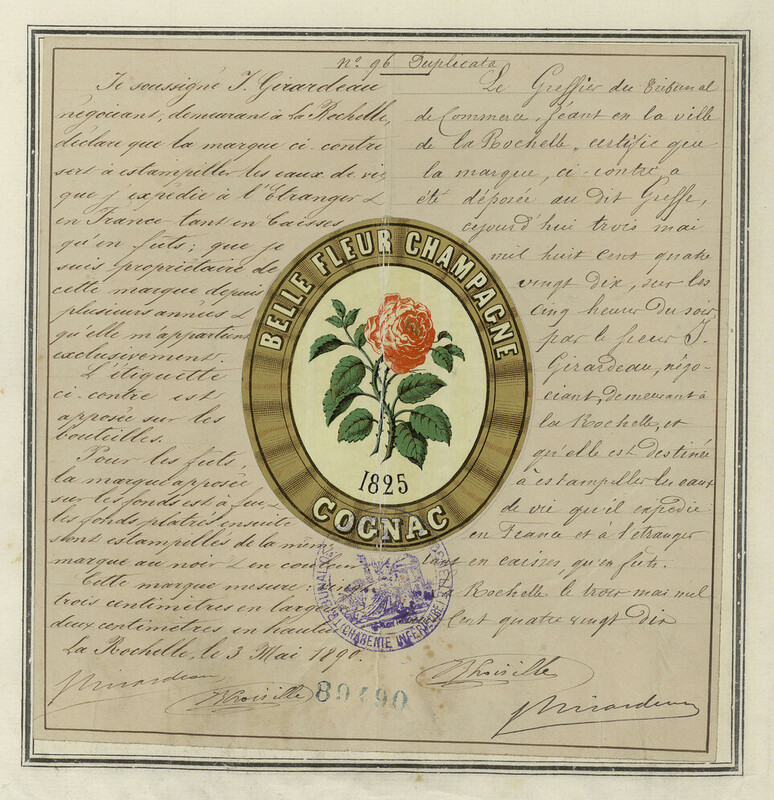 Nº 96 Duplicata
Je soussigné J. Girardeau
négociant, demeurant à La Rochelle,
déclare que la marque ci-contre
sert à estampiller les eaux de vie
que j'expédie à l'Etranger &
en France tant en Caisses
qu'en futs; que je
suis propriétaire de
cette marque depuis
plusieurs années &
qu'elle m'appartient
exclusivement.
L'étiquette
ci-contre est
apposée sur les
bouteilles.
Pour les futs
la marque apposée
sur les fonds est à feu,
les fonds platrés ensuite
sont estampillés de la même
marque au noir & en
Cette marque mesure:
trois centimètres en
deux centimètres en
La Rochelle, le 3 Mai 1890.
Girardeau
89490
Le Greffier du Tribunal
de Commerce, séant en la ville
de la Rochelle, certifie que
la marque, ci-contre, a
été déposée au dit Greffe,
aujourd'hui trois mai
mil huit cent quatre
vingt dix, sur les
cinq heures du soir,
par le sieur J.
Girardeau, négo-
ciant, demeurant à
la Rochelle, et
qu'elle est destinée
à estampiller les eaux
de vie qu'il expédie
en France et à l'étranger
tant en caisses, qu'en futs.
Rochelle le trois mai mil
cent quatre vingt dix
Girardeau
BELLE FLEUR CHAMPAGNE
1825
COGNAC
CHARENTE INFERIEURE